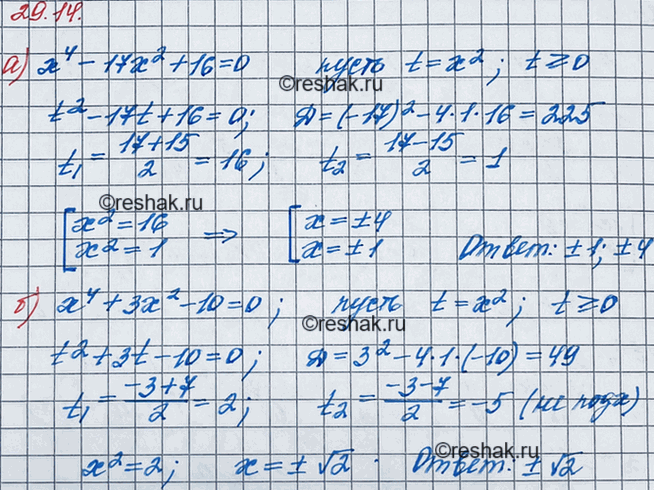 29.14.
а) x⁴ - 17x² + 16 = 0 пусть t = x²; t ≥ 0
©reshak.ru
t² - 17t + 16 = 0; Д = (-17)² - 4·1·16 = 225
t₁ = (17+15)/2 = 16; t₂ = (17-15)/2 = 1
©reshak.ru
[x² = 16 ⇒ [x = ±4
[x² = 1 [x = ±1 Ответ: ±1; ±4
б) x⁴ + 3x² - 10 = 0; пусть t = x²; t ≥ 0
©reshak.ru
t² + 3t - 10 = 0; Д = 3² - 4·1·(-10) = 49
t₁ = (-3+7)/2 = 2; t₂ = (-3-7)/2 = -5 (не подх)
©reshak.ru
x² = 2; x = ±√2. Ответ: ±√2